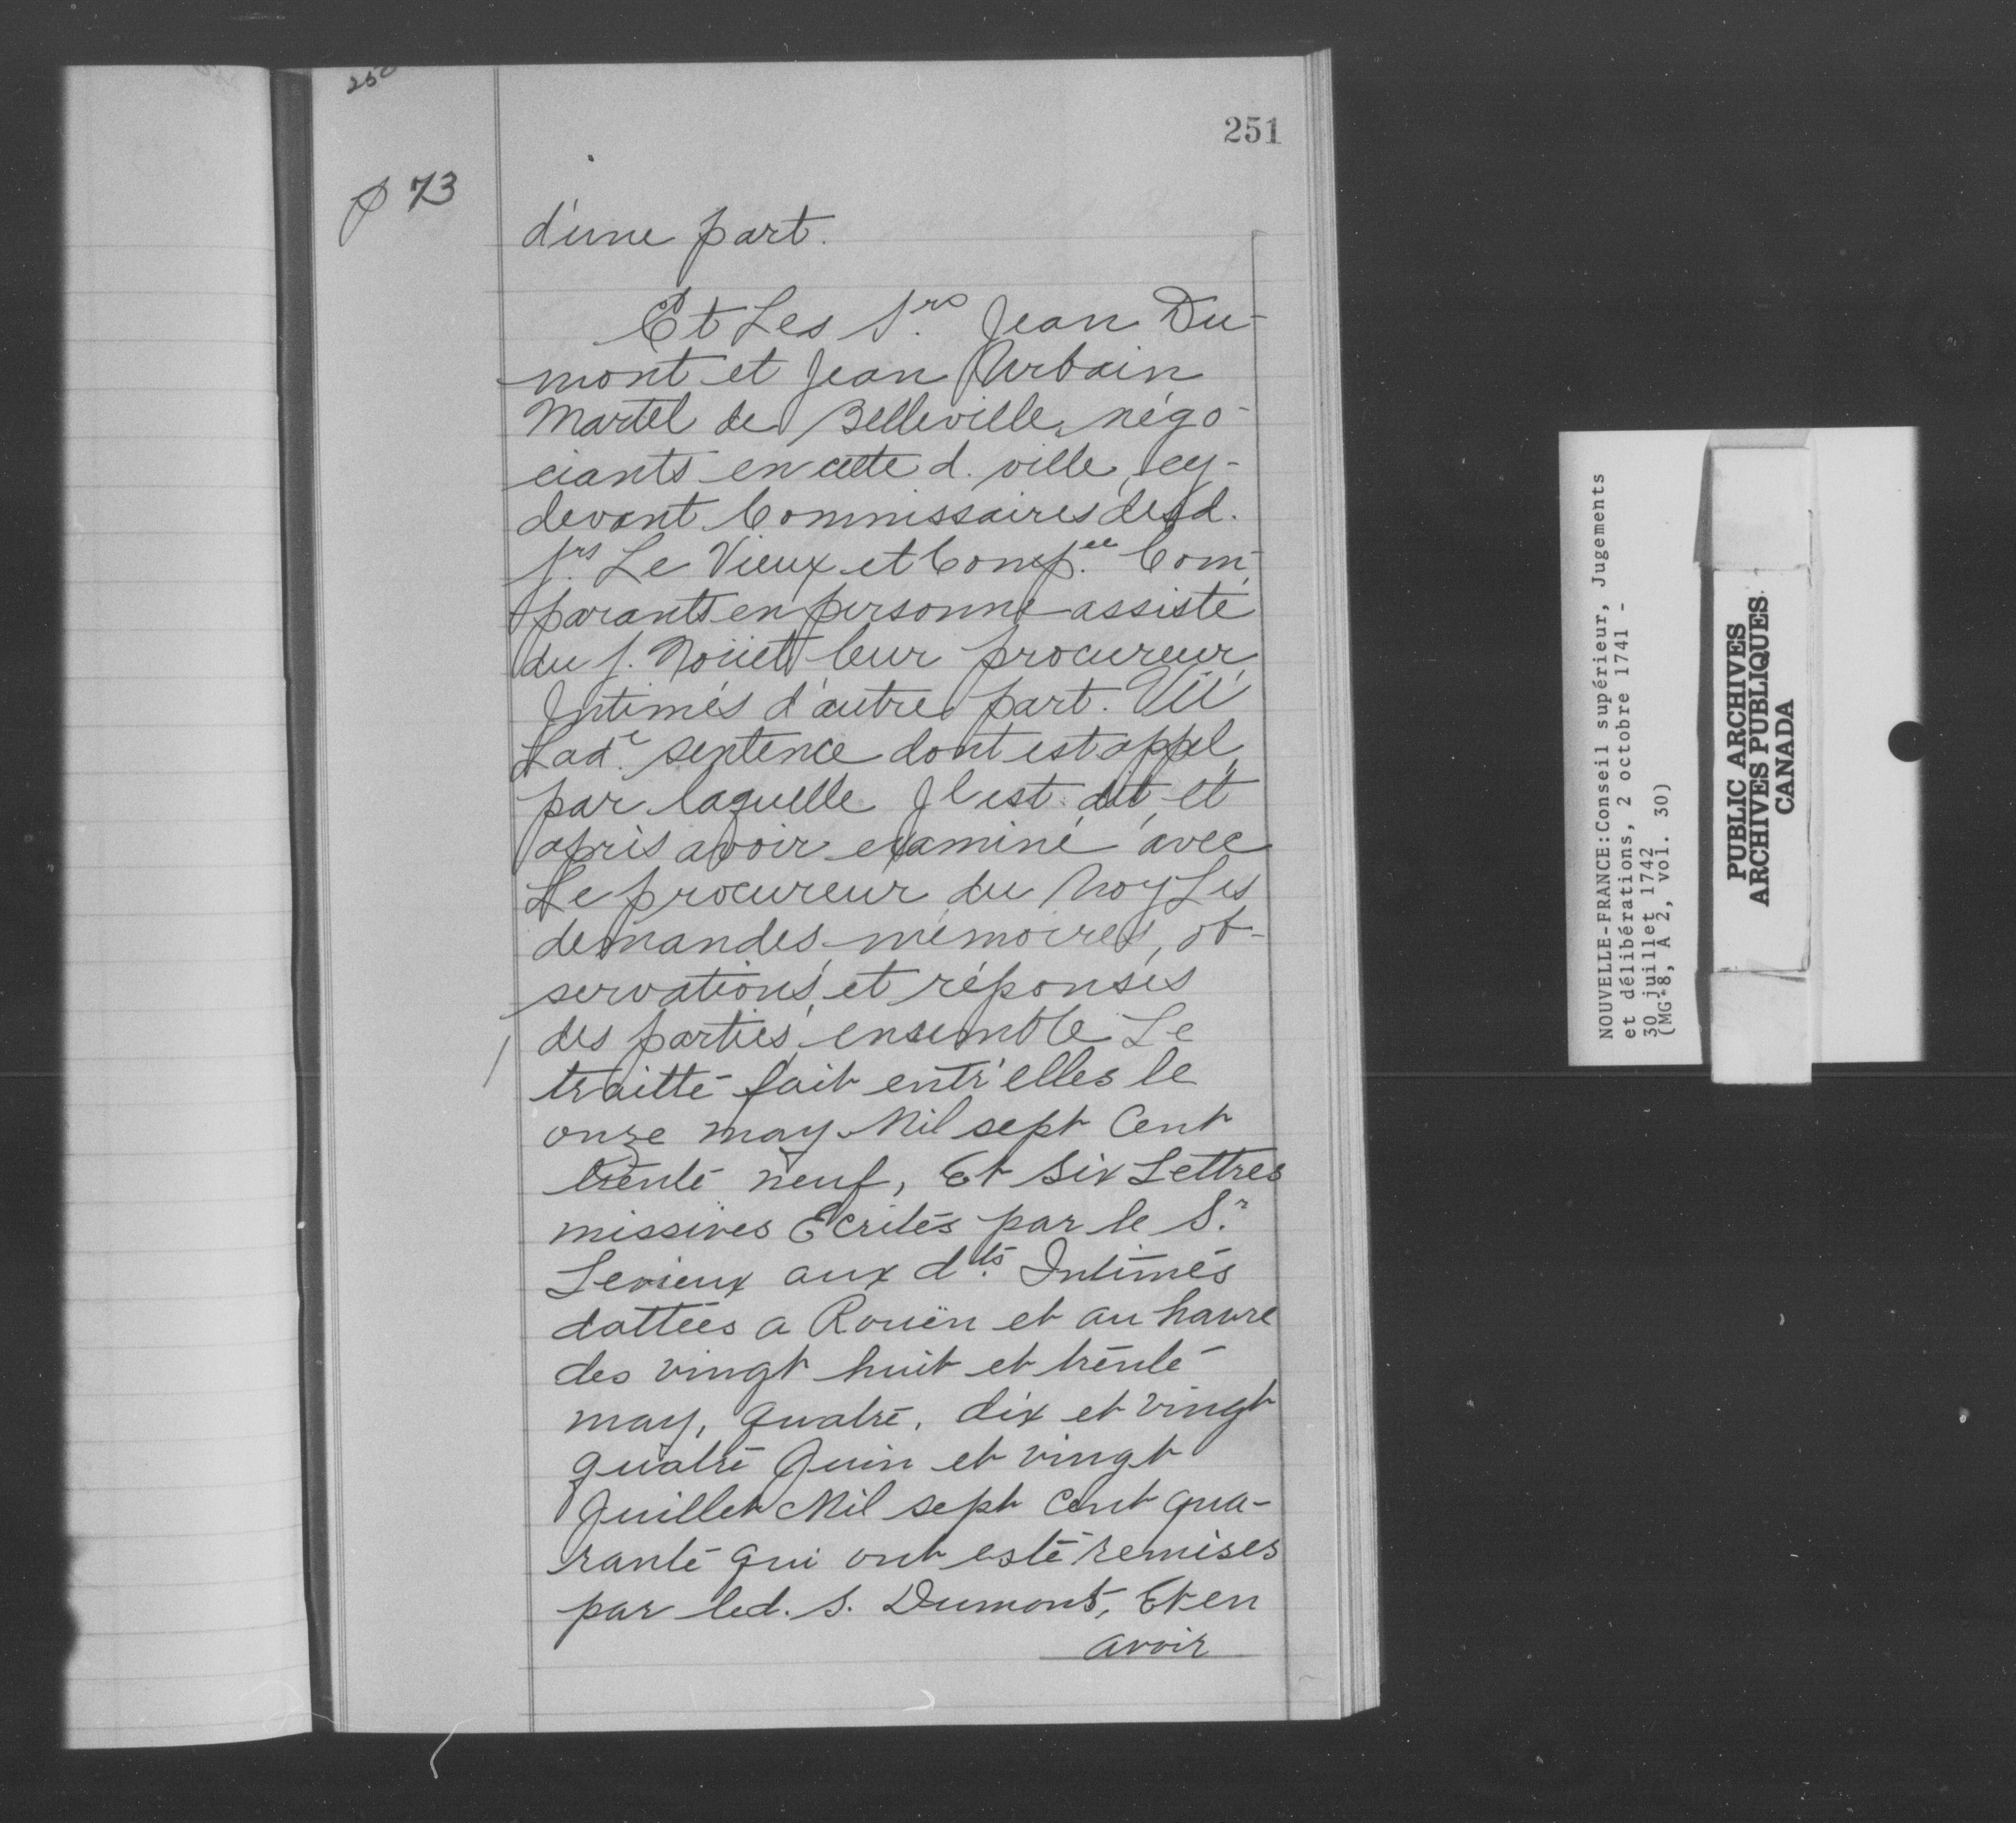 250
251
p 73
d'une part.
Et Les Srs Jean Du-
mont et Jean Urbain
Martel de Belleville, négo-
ciants en cette d. ville, cy-
devant Commissaires desd.
Srs Le Vieux et Compee. Com-
parants en personne assisté
du S. Noüet leur procureur,
Intimés d'autre part. Vü
Lade sentence dont est appel,
par laquelle Il est dit, et
après avoir examiné avec
Le procureur du Roy Les
demandes, mémoires, ob-
servations, et réponses
des parties, ensemble Le
traitté fait entr'elles le
onze may Mil sept Cent
trente neuf, Et six Lettres
missives Ecrites par le S.r
Levieux aux dts. Intimés
dattées a Rouën et au havre
des vingt huit et trente
may, quatre, dix et vingt
quatre Juin et vingt
Juillet Mil sept Cent qua-
rante qui ont esté remises
par led. S. Dumont, Et en
avoir
NOUVELLE-FRANCE: Conseil supérieur, Jugements
et délibérations, 2 octobre 1741 -
30 juillet 1742
(MG 8, A 2, vol. 30)
PUBLIC ARCHIVES
ARCHIVES PUBLIQUES
CANADA